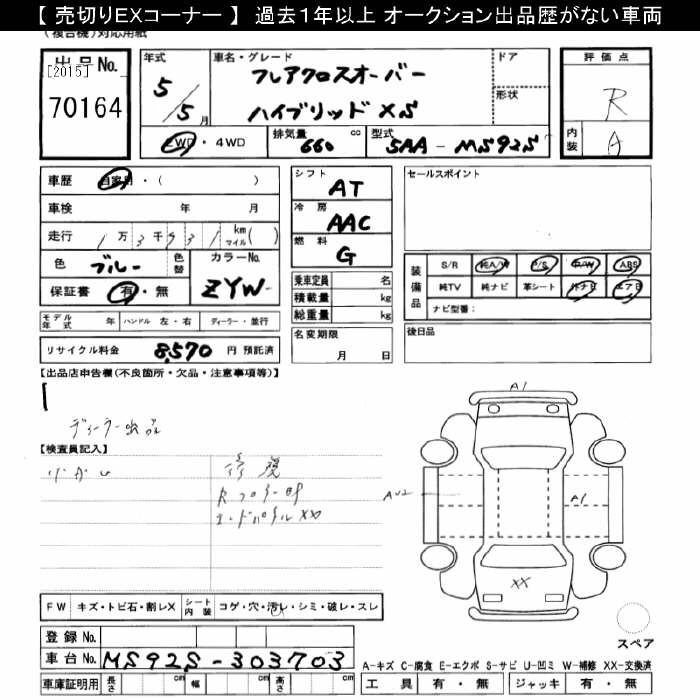 【 売切りEXコーナー 】 過去1年以上 オークション出品歴がない車両
(複合機)対応用紙
出品No.
[2015]
70164
年式
5/5月
車名・グレード
フレアクロスオーバー
ハイブリッド XS
ドア
形状
評価点
R
内装
A
2WD・4WD
排気量
660 cc
型式
5AA-MS92S
車歴 自家用・( )
車検 年 月
走行 1万3千931 km マイル( )
色 ブルー 色替
カラーNo.
ZYW
保証書 有・無
シフト
AT
冷房
AAC
燃料
G
乗車定員 名
積載量 kg
総重量 kg
セールスポイント
装備品
S/R 純A/W P/S P/W ABS
純TV 純ナビ 革シート 外ナビ エアB
ナビ型番:
モデル年式 年 ハンドル 左・右 ディーラー・並行
リサイクル料金 8,570 円 預託済
名変期限
月 日
後日品
【出品店申告欄(不良箇所・欠品・注意事項等)】
ディーラー出品
【検査員記入】
修復
Rフロアー凹
エンドパネルXX
A1
A1
XX
FW キズ・トビ石・割レX シート内装 コゲ・穴・汚レ・シミ・破レ・スレ
登録No.
車台No. MS92S-303703
スペア
A-キズ C-腐食 E-エクボ S-サビ U-凹ミ W-補修 XX-交換済
車庫証明用 長さ cm 幅 cm 高さ cm
工具 有・無 ジャッキ 有・無